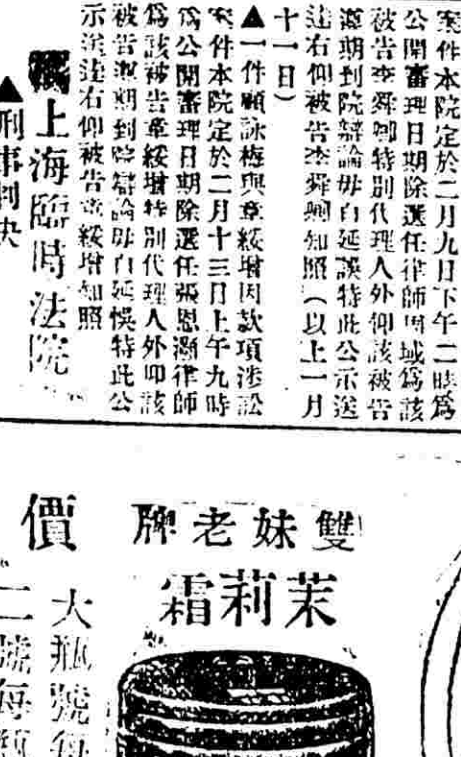 案件本院定於二月九日下午二時爲
公開審理日期除選任律師周域爲該
被告李舜卿特別代理人外仰該被告
遵期到院辯論毋自延誤特此公示送
達右仰被告李舜卿知照（以上一月
十一日）
▲一件顧詠梅與章綬增因款項涉訟
案件本院定於二月十三日上午九時
爲公開審理日期除選任張恩灝律師
爲該被告章綬增特別代理人外仰該
被告遵期到院辯論毋自延悞特此公
示送達右仰被告章綬增知照
上海臨時法院
▲刑事判決
雙妹老牌
茉莉霜
價
大瓶號每
二號每瓶